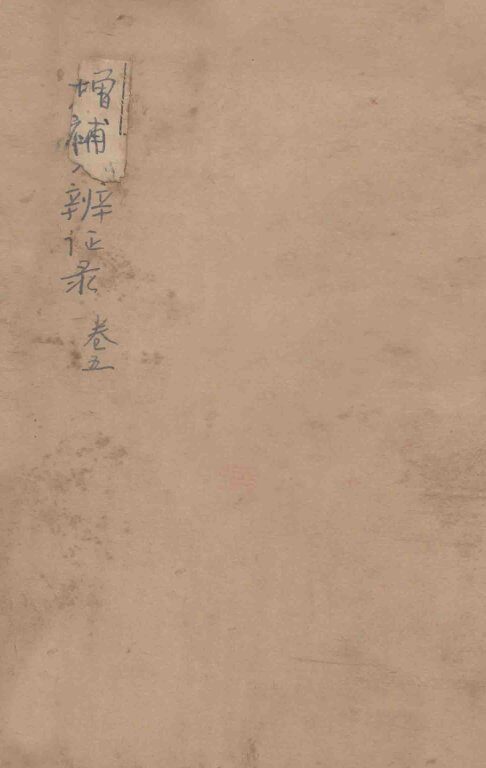 增補辨证录 卷五